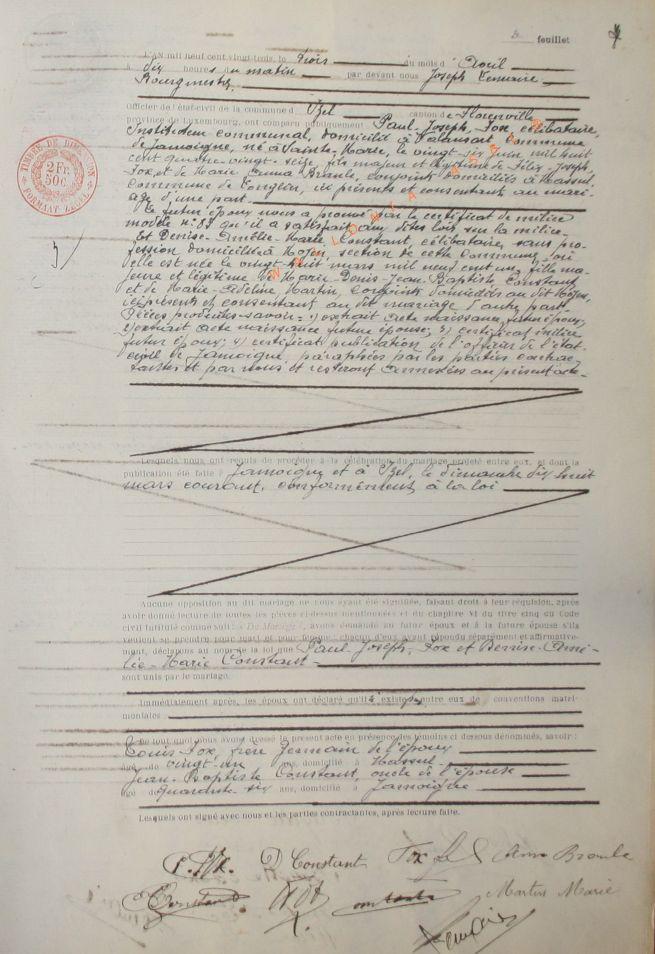 feuillet
L'AN mil neuf cent vingt-trois, le trois du mois d'Avril
à dix heures du matin par devant nous Joseph
Bourgmestre
Officier de l'état-civil de la commune d'Izel canton de Florenville
province de Luxembourg, ont comparu publiquement Paul-Joseph, Fox, célibataire,
Instituteur communal, domicilié à Valansart, commune
de Jamoigne, né à Sainte-Marie, le vingt-six Juin mil huit
cent quatre-vingt-seize, fils majeur et légitime de Félix, Joseph,
Fox, et de Marie, Braule, conjoints domiciliés à Massul,
commune de Longlier, ici présents et consentant au mari-
age d'une part
Le futur époux nous a prouvé par le certificat de milice
modèle n° 83 qu'il a satisfait aux dites lois sur la milice
Et Denise-Amélie-Marie Constant, célibataire, sans pro-
fession domiciliée à Moyen, section de cette commune, où
elle est née le vingt-huit mars mil neuf cent un, fille ma-
jeure et légitime de Marie-Denis-Jean-Baptiste, Constant
et de Marie-Adeline, Martin, conjoints domiciliés au dit Moyen,
ici présents et consentant au dit mariage d'autre part.
Pièces produites savoir: 1) extrait acte naissance futur époux;
2) extrait acte naissance future épouse; 3) certificat milice
futur époux; 4) certificat publication de l'officier de l'état-
civil de Jamoigne, paraphées par les parties contrac-
tantes et par nous et resteront annexées au présent acte
Lesquels nous ont requis de procéder à la célébration du mariage projeté entre eux, et dont la
publication été faite à Jamoigne et à Izel, le dimanche dix-huit
mars courant, conformément à la loi
Aucune opposition au dit mariage ne nous ayant été signifiée, faisant droit à leur réquisition, après
avoir donné lecture de toutes les pièces ci-dessus mentionnées et du chapitre VI du titre cinq du Code
civil intitulé commevoit : « Du Mariage », avons demandé au futur époux et à la future épouse s'ils
veulent se prendre pour mari et pour femme : chacun d'eux ayant répondu séparément et affirmative-
ment, déclarons au nom de la loi que Paul Joseph, Fox et Denise-Amé-
lie-Marie Constant
sont unis par le mariage.
Immédiatement après, les époux ont déclaré qu'il existe entre eux de conventions matri-
moniales
De tout quoi nous avons dressé le présent acte en présence des témoins ci dessous dénommés, savoir :
Louis Fox, frère germain de l'époux
âgé de vingt-un ans, domicilié à Massul
Jean-Baptiste Constant, oncle de l'épouse
âgé de quarante-six ans, domicilié à Jamoigne
Lesquels ont signé avec nous et les parties contractantes, après lecture faite.
D Constant Fox Braule
Constant Martin Marie
TIMBRE DE DIMENSION
2 Fr. 50 c.
FORMAAT ZEGEL